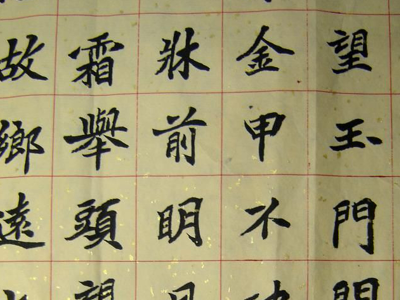 望玉門
金甲不
牀前明月
霜舉頭望
故鄉遠